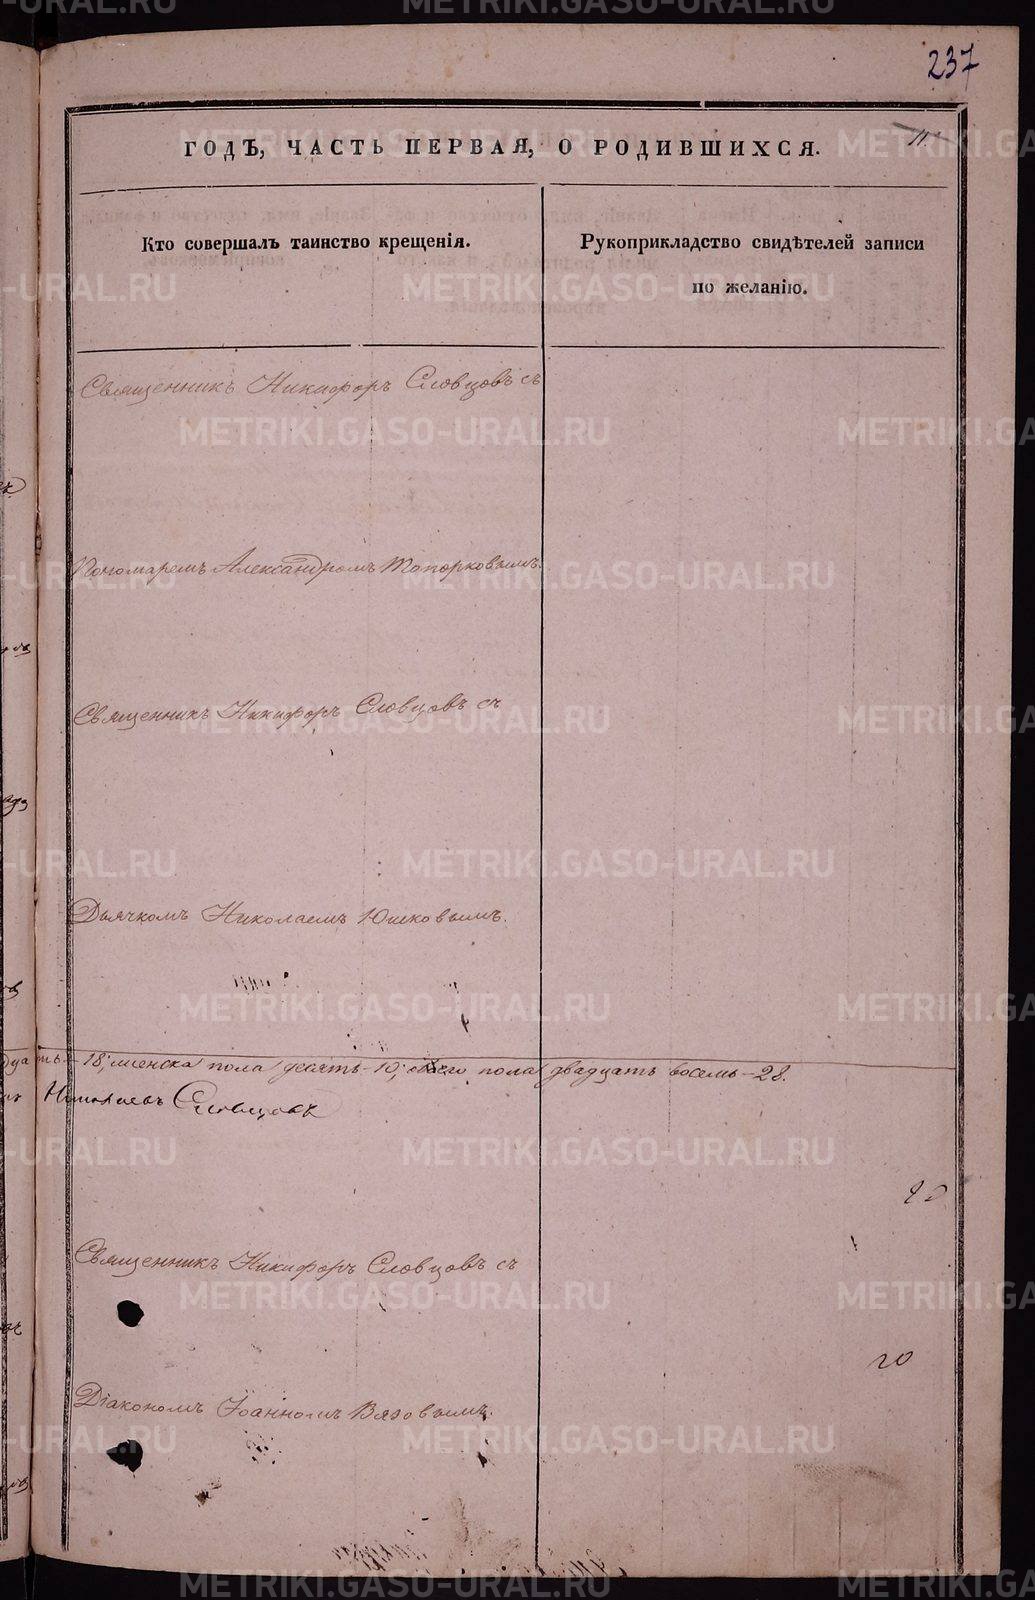 237
11
ГОДЪ, ЧАСТЬ ПЕРВАЯ, О РОДИВШИХСЯ.
Кто совершалъ таинство крещенія.
Рукоприкладство свидѣтелей записи
по желанію.
Священникъ Никифоръ Словцовъ съ
Пономаремъ Александромъ Топорковымъ.
Священникъ Никифоръ Словцовъ съ
Дьячкомъ Николаемъ Юшковымъ.
18; женска пола десять - 10; обоего пола двадцать восемь - 28.
Николаевъ Словцовъ
Священникъ Никифоръ Словцовъ съ
20
Діакономъ Іоанномъ Вязовымъ.
METRIKI.GASO-URAL.RU